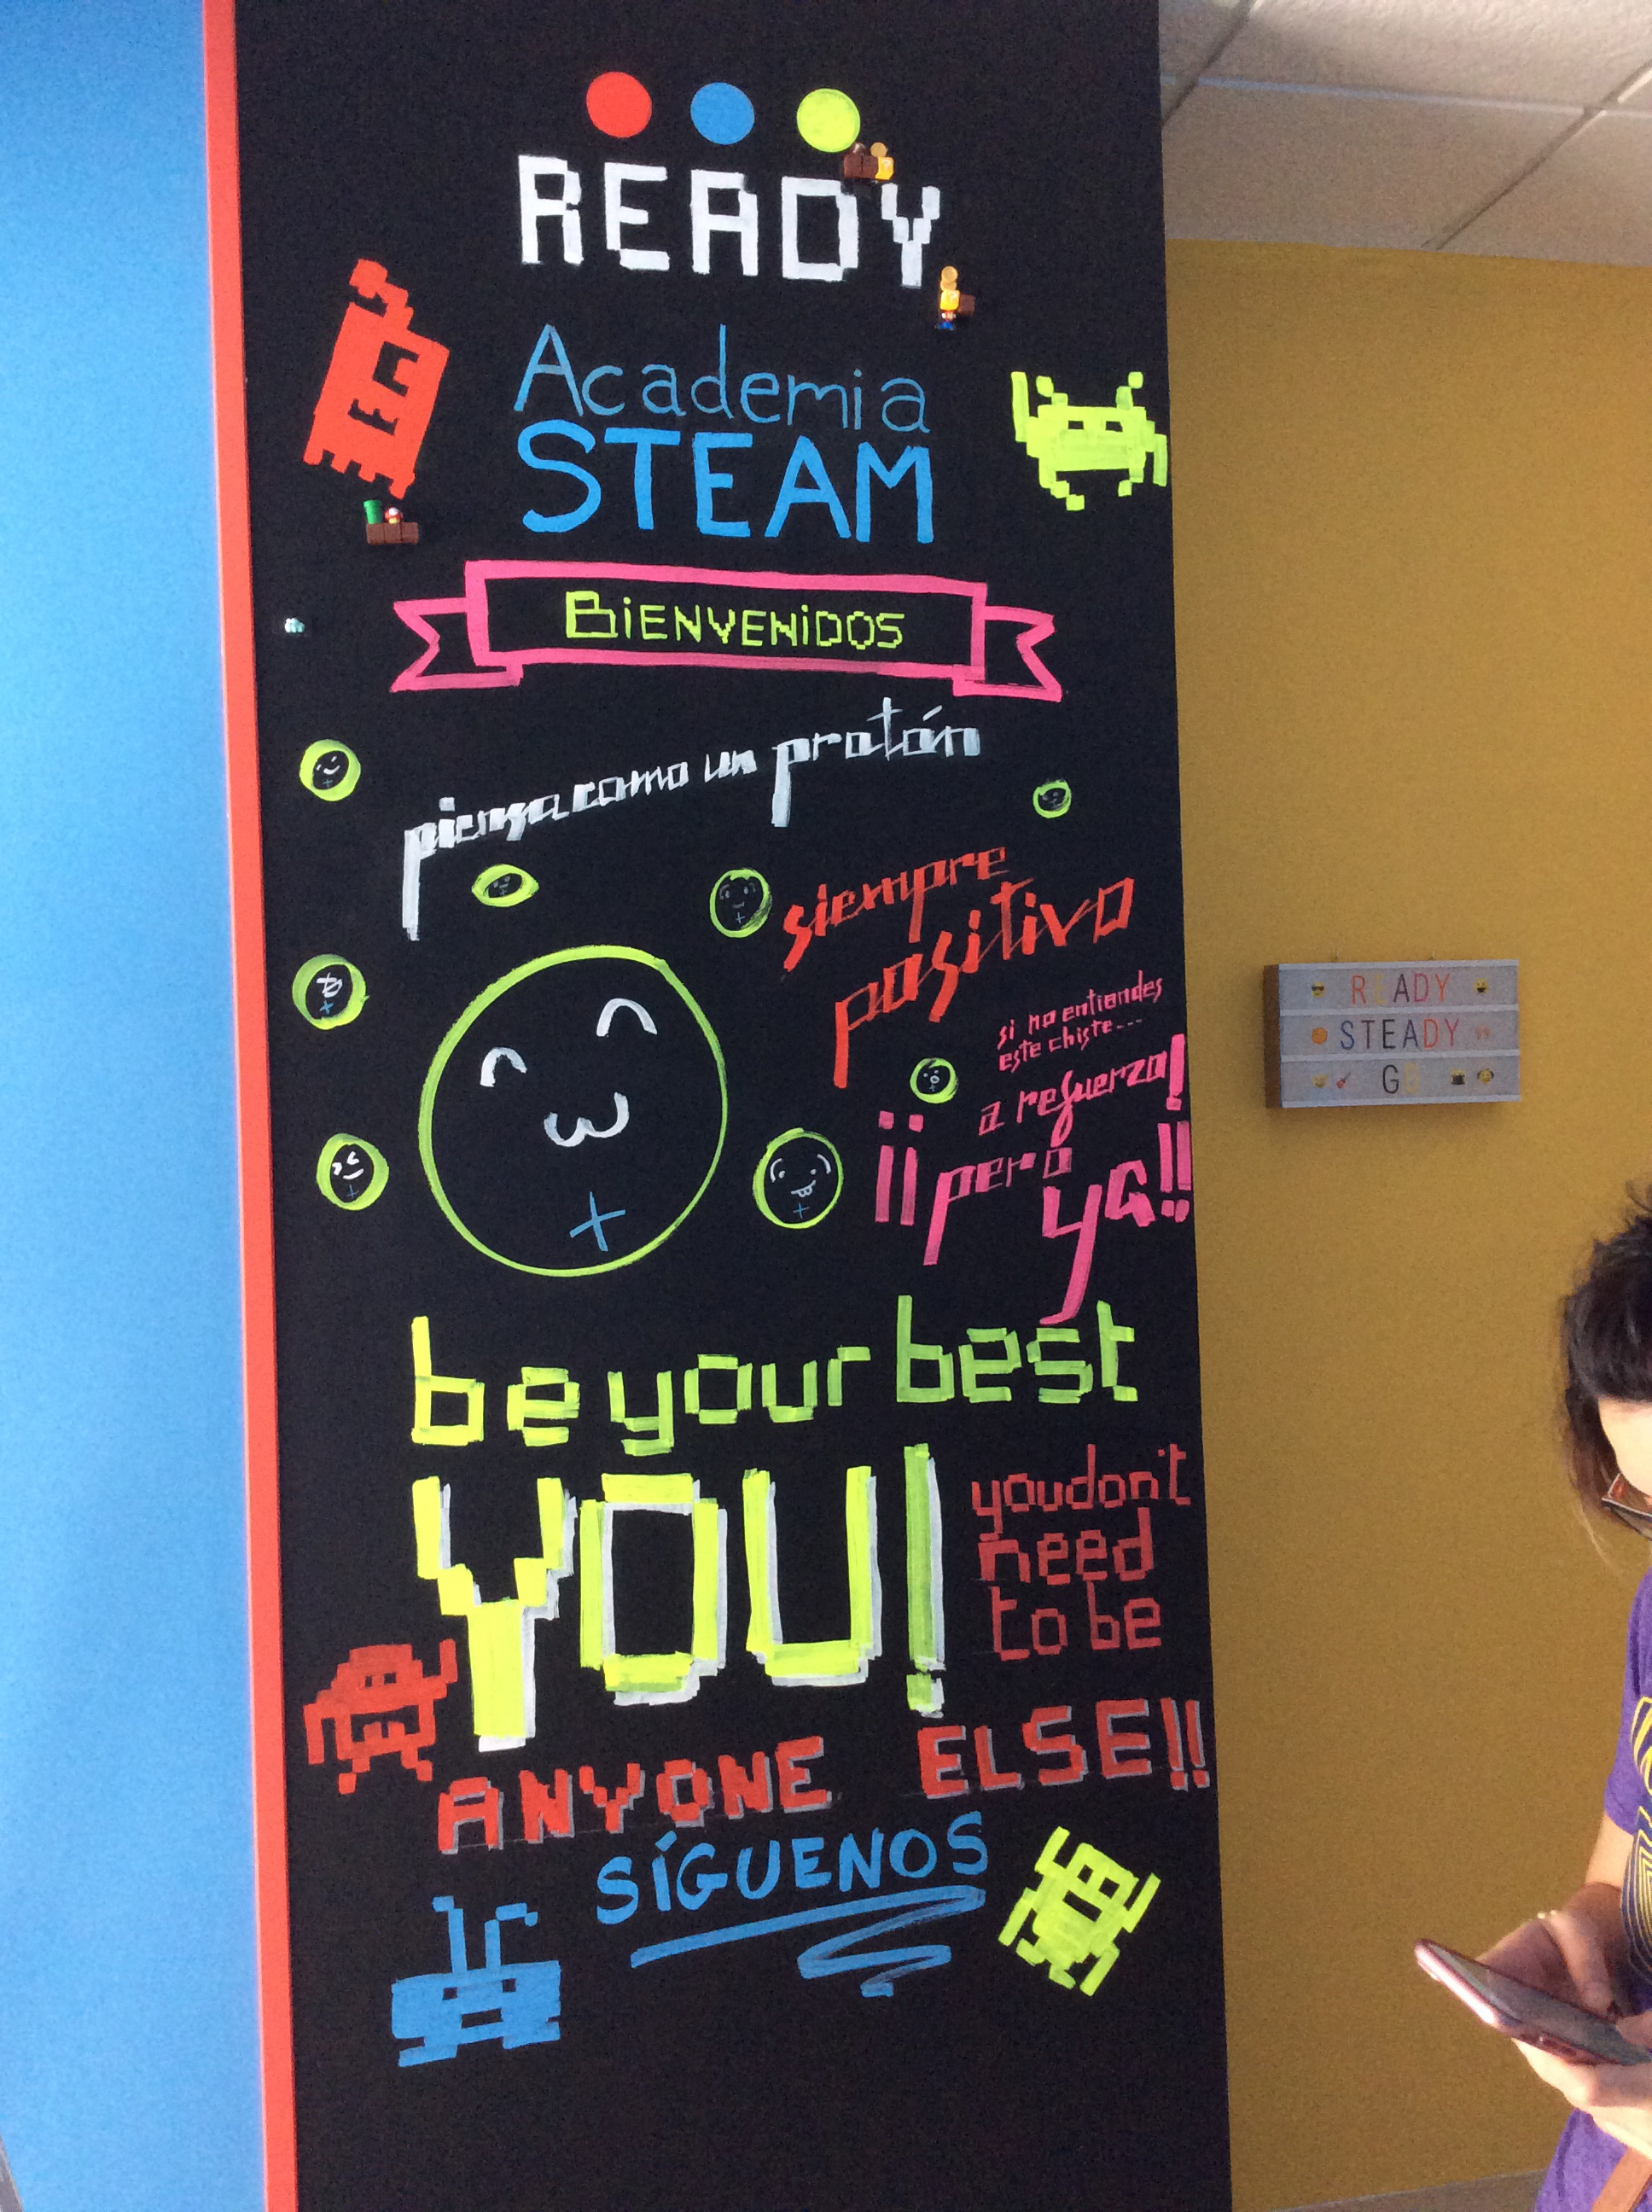 READY
Academia
STEAM
BiENVENiDOS
piensa como un protón
siempre
positivo
si no entiendes
este chiste...
a refuerzo!
¡¡pero
ya!!
be your best
YOU!
you don't
need
to be
ANYONE ELSE!!
SÍGUENOS
READY
STEADY
GO